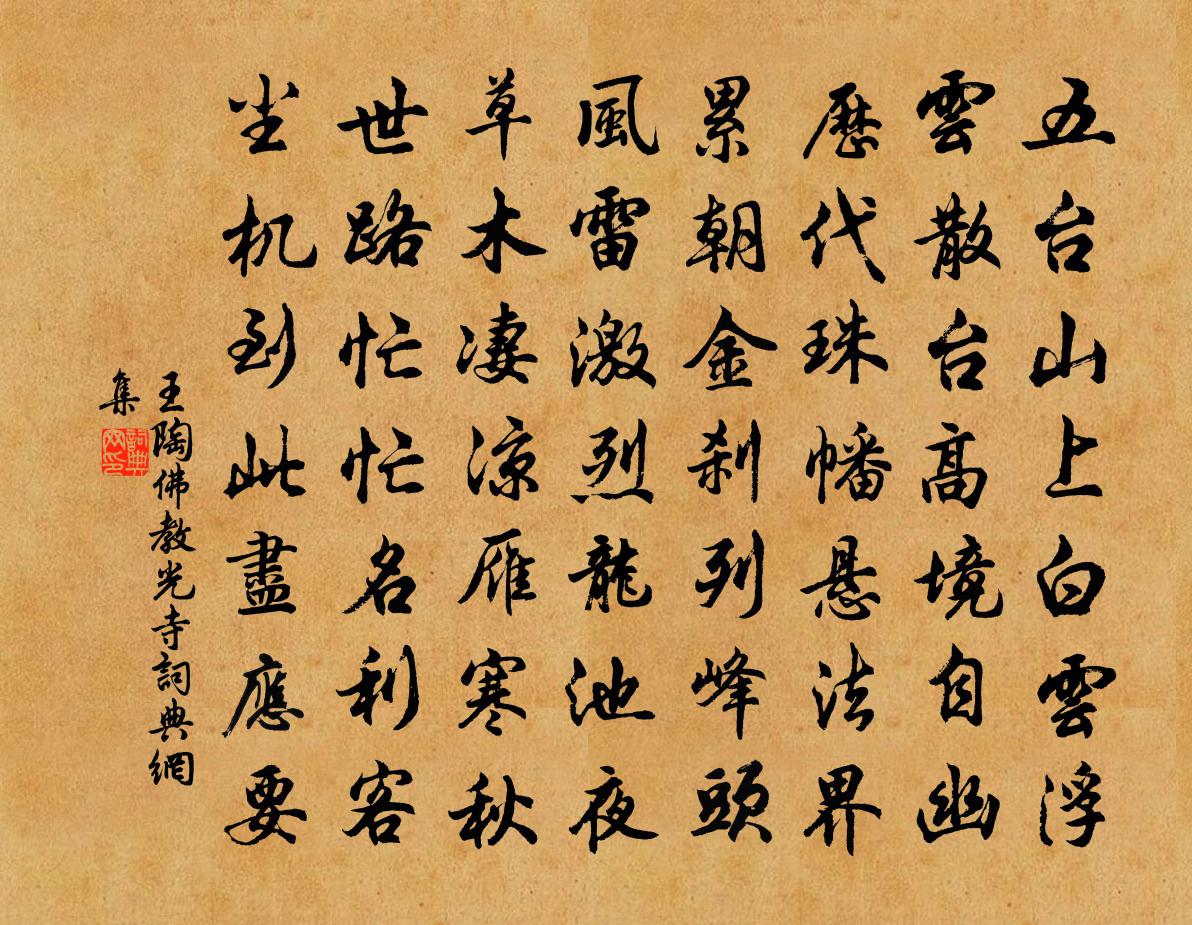 五台山上白雲浮
雲散台高境自幽
歷代珠幡懸法界
累朝金剎列峰頭
風雷激烈龍池夜
草木凄涼雁寒秋
世路忙忙名利客
坐机到此盡應要
王陶佛教光寺詞典網
集
詞典